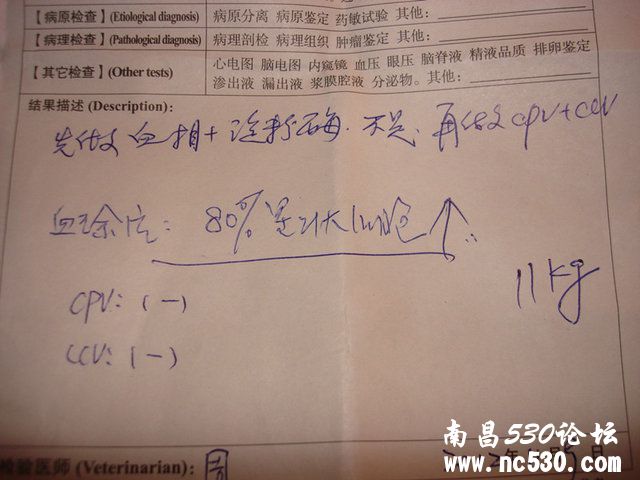 【病原检查】(Etiological diagnosis) 病原分离 病原鉴定 药敏试验 其他:
【病理检查】(Pathological diagnosis) 病理剖检 病理组织 肿瘤鉴定 其他:
【其它检查】(Other tests) 心电图 脑电图 内窥镜 血压 眼压 脑脊液 精液品质 排卵鉴定
渗出液 漏出液 浆膜腔液 分泌物。其他:
结果描述 (Description):
先做 血相+诊断 不是. 再做 CPV+CCV
血涂片: 80%是 ↑
11kg
CPV: (-)
CCV: (-)
检验医师 (Veterinarian):
年 月 日
南昌530论坛
www.nc530.com